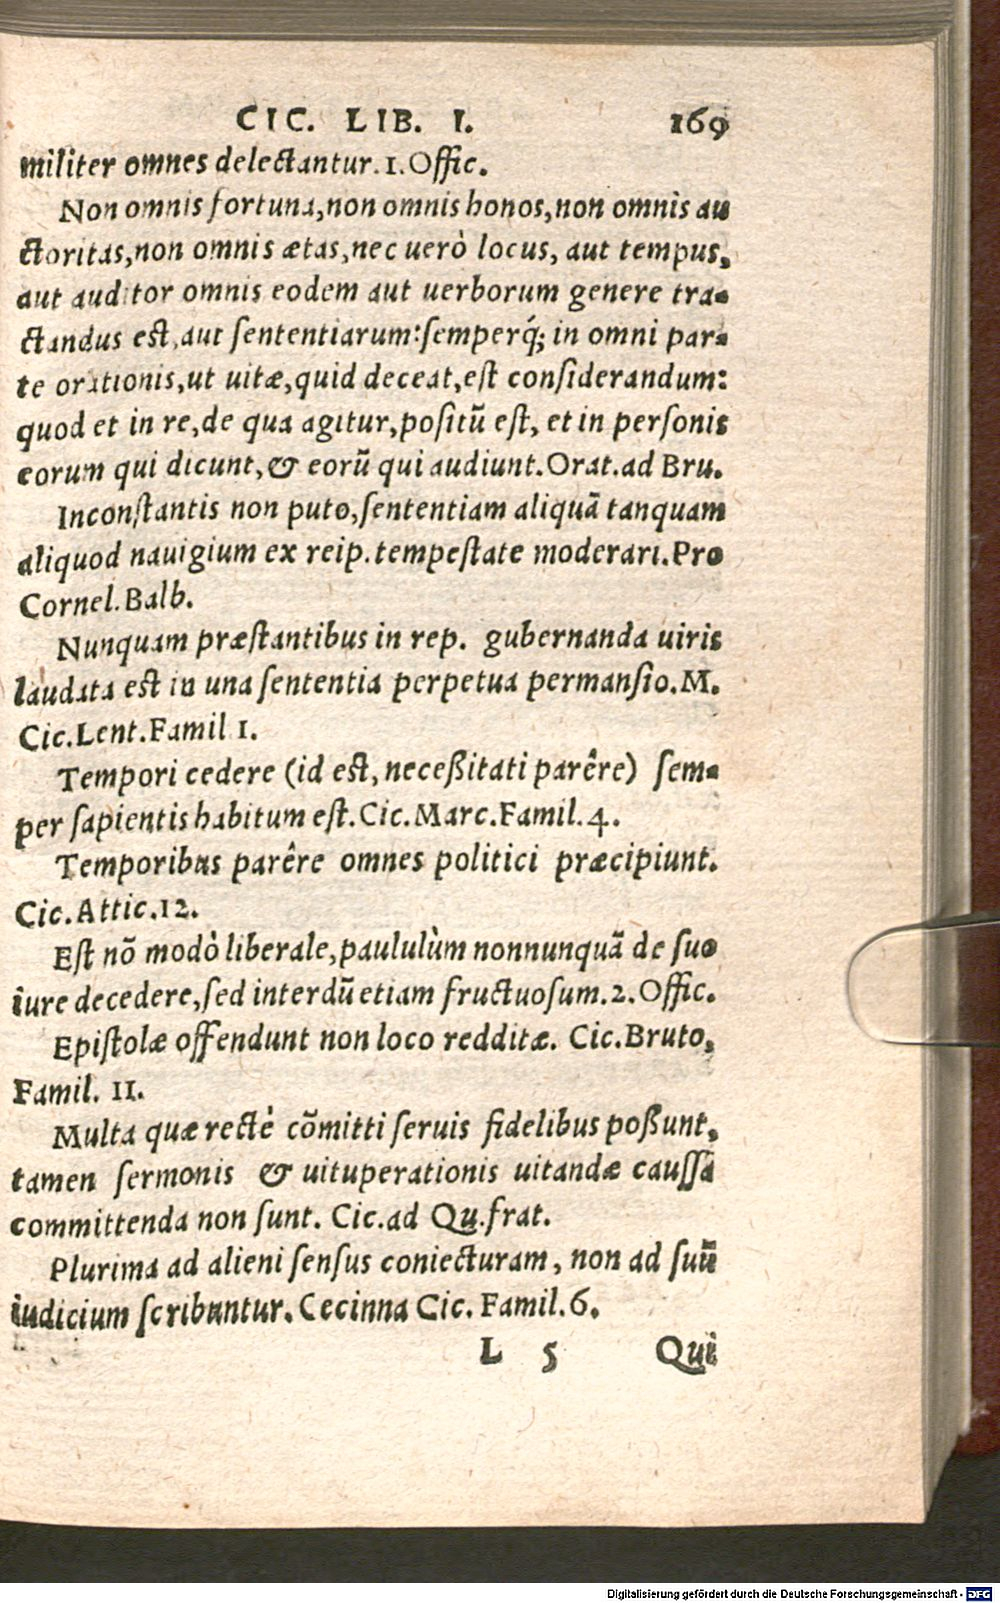 CIC. LIB. I. 169
militer omnes delectantur. 1. Offic.
Non omnis fortuna, non omnis honos, non omnis au
ctoritas, non omnis ætas, nec uerò locus, aut tempus,
aut auditor omnis eodem aut uerborum genere tra-
ctandus est, aut sententiarum: semperq́; in omni par-
te orationis, ut uitæ, quid deceat, est considerandum:
quod et in re, de qua agitur, positũ est, et in personis
eorum qui dicunt, & eorũ qui audiunt. Orat. ad Bru.
Inconstantis non puto, sententiam aliquã tanquam
aliquod nauigium ex reip. tempestate moderari. Pro
Cornel. Balb.
Nunquam præstantibus in rep. gubernanda uiris
laudata est in una sententia perpetua permansio. M.
Cic. Lent. Famil 1.
Tempori cedere (id est, neceßitati parêre) sem-
per sapientis habitum est. Cic. Marc. Famil. 4.
Temporibus parêre omnes politici præcipiunt.
Cic. Attic. 12.
Est nõ modò liberale, paululùm nonnunquã de suo
iure decedere, sed interdũ etiam fructuosum. 2. Offic.
Epistolæ offendunt non loco redditæ. Cic. Bruto,
Famil. 11.
Multa quæ rectè cõmitti seruis fidelibus poßunt,
tamen sermonis & uituperationis uitandæ caussa
committenda non sunt. Cic. ad Qu. frat.
Plurima ad alieni sensus coniecturam, non ad suũ
iudicium scribuntur. Cecinna Cic. Famil. 6.
L 5 Qui
Digitalisierung gefördert durch die Deutsche Forschungsgemeinschaft - DFG